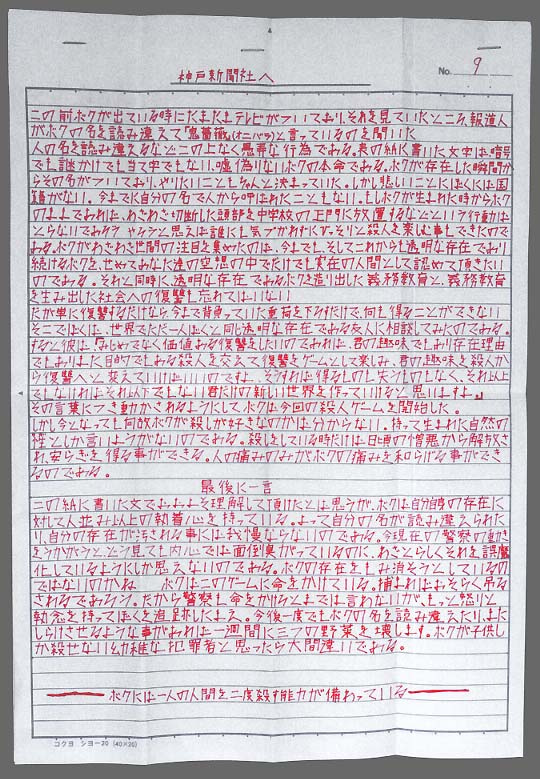 No. 9
神戸新聞社へ
この前ボクが出ている時にたまたまテレビがついており、それを見ていたところ、報道人
がボクの名を読み違えて「鬼薔薇」(オニバラ)と言っているのを聞いた
人の名を読み違えるなどこの上なく愚弄な行為である。表の紙に書いた文字は、暗号
でも謎かけでも当て字でもない、嘘偽りないボクの本命である。ボクが存在した瞬間か
らその名がついており、やりたいこともちゃんと決まっていた。しかし悲しいことにぼくには国
籍がない。今までに自分の名で人から呼ばれたこともない。もしボクが生まれた時からボク
のままであれば、わざわざ切断した頭部を中学校の正門に放置するなどという行動はと
らないであろう やろうと思えば誰にも気づかれずにひっそりと殺人を楽しむ事もできたので
ある。ボクがわざわざ世間の注目を集めたのは、今までも、そしてこれからも透明な存在であり
続けるボクを、せめてあなた達の空想の中でだけでも実在の人間として認めて頂きたい
のである。それと同時に、透明な存在であるボクを造り出した義務教育と、義務教育
を生み出した社会への復讐も忘れてはいない
だが単に復讐するだけなら、今まで背負っていた重荷を下ろすだけで、何も得ることができない
そこでぼくは、世界でただ一人ぼくと同じ透明な存在である友人に相談してみたのである。
すると彼は、「みじめでなく価値ある復讐をしたいのであれば、君の趣味でもあり存在理由
でもありまた目的でもある殺人を交えて復讐をゲームとして楽しみ、君の趣味を殺人か
ら復讐へと変えていけばいいのですよ、そうすれば得るものも失うものもなく、それ以上で
もなければそれ以下でもない君だけの新しい世界を作っていけると思いますよ。」
その言葉につき動かされるようにしてボクは今回の殺人ゲームを開始した。
しかし今となっても何故ボクが殺しが好きなのかは分からない。持って生まれた自然の
性としか言いようがないのである。殺しをしている時だけは日頃の憎悪から解放さ
れ、安らぎを得る事ができる。人の痛みのみが、ボクの痛みを和らげる事ができ
るのである。
最後に一言
この紙に書いた文でおおよそ理解して頂けたとは思うが、ボクは自分自身の存在に
対して人並み以上の執着心を持っている。よって自分の名が読み違えられた
り、自分の存在が汚される事には我慢ならないのである。今現在の警察の動き
をうかがうと、どう見ても内心では面倒臭がっているのに、わざとらしくそれを誤魔
化しているようにしか思えないのである。ボクの存在をもみ消そうとしているの
ではないのかね ボクはこのゲームに命をかけている。捕まればおそらく吊る
されるであろう。だから警察も命をかけろとまでは言わないが、もっと怒りと
執念を持ってぼくを追跡したまえ。今後一度でもボクの名を読み違えたり、また
しらけさせるような事があれば一週間に三つの野菜を壊します。ボクが子供し
か殺せない幼稚な犯罪者と思ったら大間違いである。
ボクには一人の人間を二度殺す能力が備わっている
コクヨ シヨー20 (40×20)